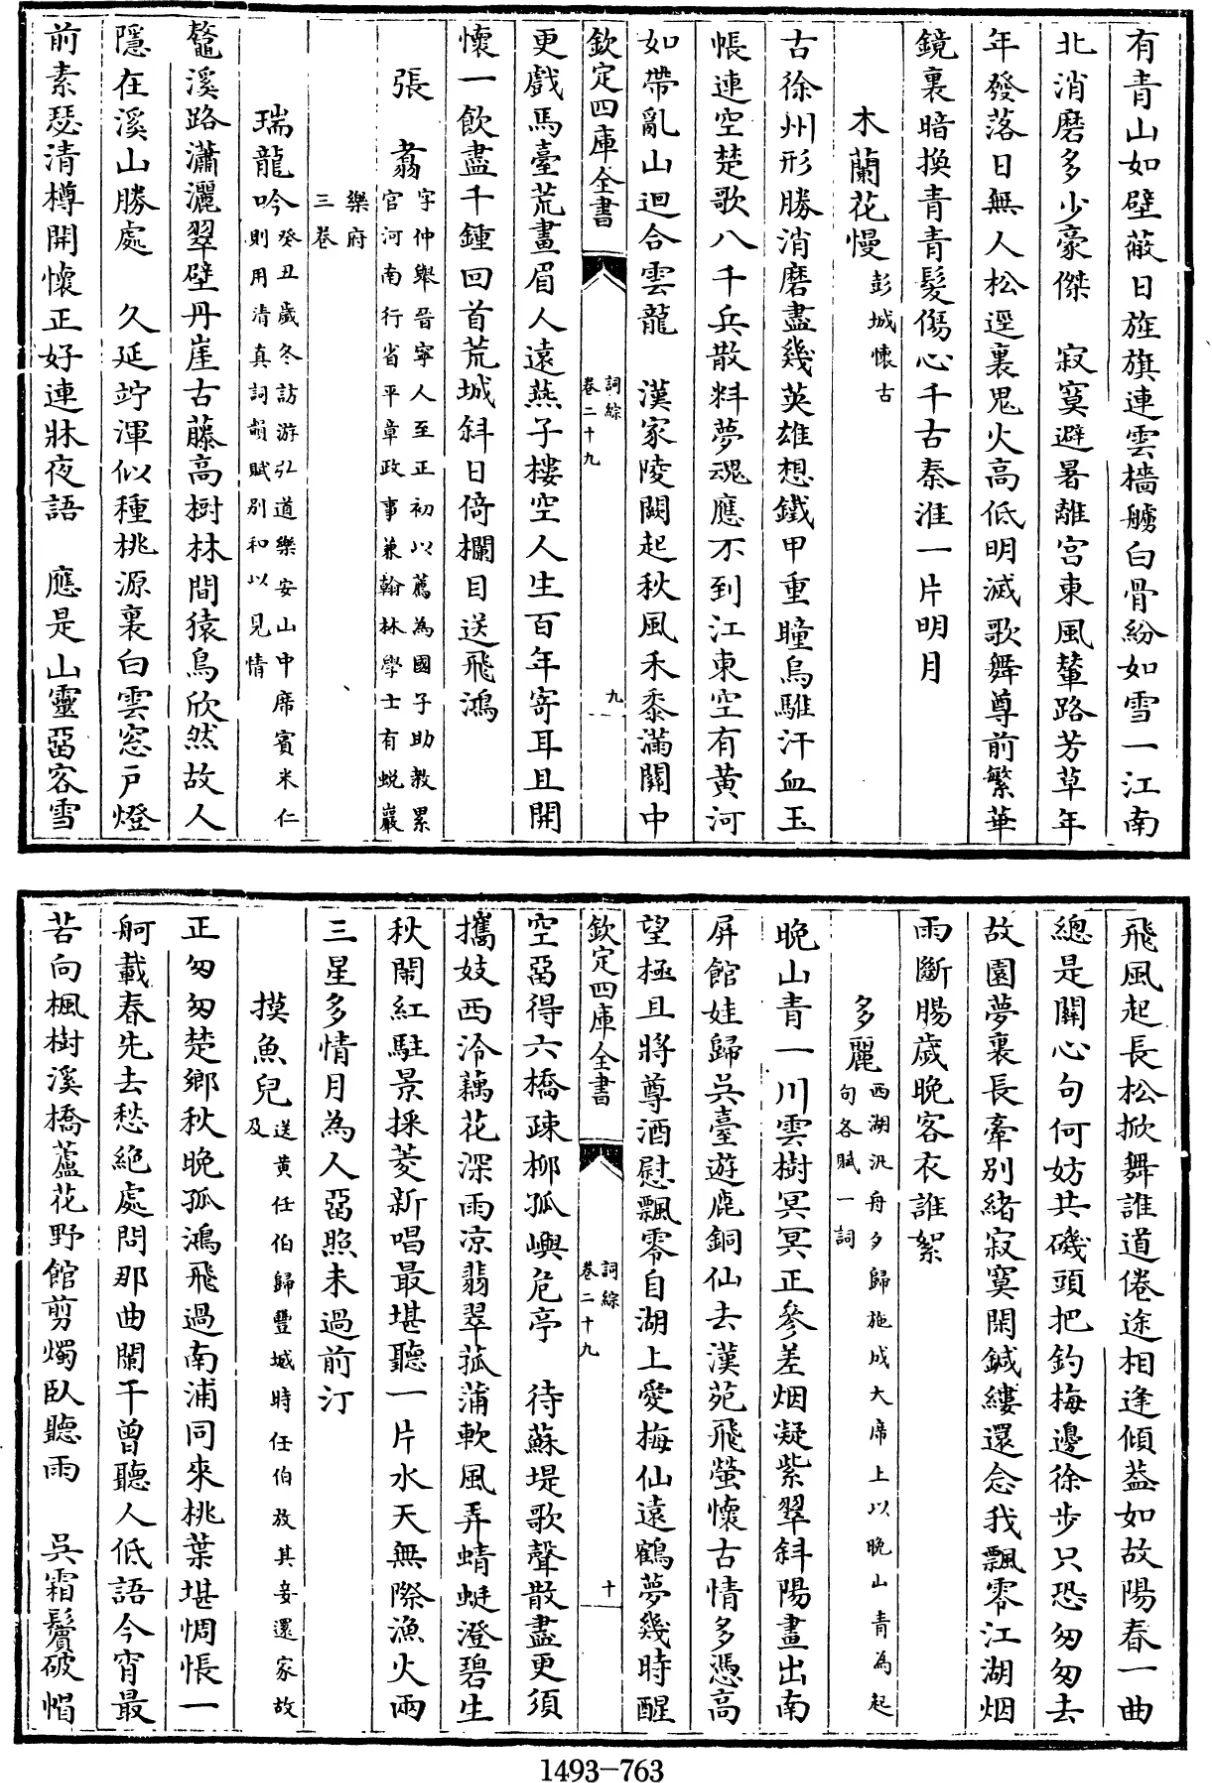 有青山如壁蔽日旌旗連雲檣艣白骨紛如雪一江南
北消磨多少豪傑　寂寞避暑離宫東風輦路芳草年
年發落日無人松逕裏鬼火高低明滅歌舞尊前繁華
鏡裏暗換青青髮傷心千古秦淮一片明月
木蘭花慢彭城懷古
古徐州形勝消磨盡幾英雄想鐵甲重瞳烏騅汗血玉
帳連空楚歌八千兵散料夢魂應不到江東空有黄河
如帶亂山迴合雲龍　漢家陵闕起秋風禾黍滿關中
欽定四庫全書
詞綜
卷二十九
九
更戲馬臺荒畫眉人遠燕子樓空人生百年寄耳且開
懷一飲盡千鍾回首荒城斜日倚欄目送飛鴻
張翥
字仲舉晉寧人至正初以薦為國子助教累
官河南行省平章政事兼翰林學士有蜕巖
樂府
三卷
瑞龍吟
癸丑歲冬訪游弘道樂安山中席賓米仁
則用清真詞韻賦别和以見情
鼇溪路瀟灑翠壁丹崖古藤高樹林間猿鳥欣然故人
隱在溪山勝處　久延竚渾似種桃源裏白雲窓戸燈
前素瑟清樽開懷正好連牀夜語　應是山靈畱客雪
飛風起長松掀舞誰道倦途相逢傾葢如故陽春一曲
總是關心句何妨共磯頭把釣梅邊徐步只恐匆匆去
故園夢裏長牽别緒寂寞閒鍼縷還念我飄零江湖烟
雨斷腸歲晚客衣誰絮
多麗
西湖汎舟夕歸施成大席上以晚山青為起
句各賦一詞
晚山青一川雲樹冥冥正參差烟凝紫翠斜陽畫出南
屏館娃歸吳臺遊鹿銅仙去漢苑飛螢懷古情多憑高
望極且將尊酒慰飄零自湖上愛梅仙遠鶴夢幾時醒
欽定四庫全書
詞綜
卷二十九
十
空畱得六橋疎柳孤嶼危亭　待蘇堤歌聲散盡更須
攜妓西泠藕花深雨凉翡翠菰蒲軟風弄蜻蜓澄碧生
秋閙紅駐景採菱新唱最堪聽一片水天無際漁火兩
三星多情月為人畱照未過前汀
摸魚兒
送黄任伯歸豐城時任伯放其妾還家故
及
正匆匆楚鄉秋晚孤鴻飛過南浦同來桃葉堪惆悵一
舸載春先去愁絶處問那曲闌干曾聽人低語今宵最
苦向楓樹溪橋蘆花野館剪燭臥聽雨　吳霜鬢破帽
1493—763